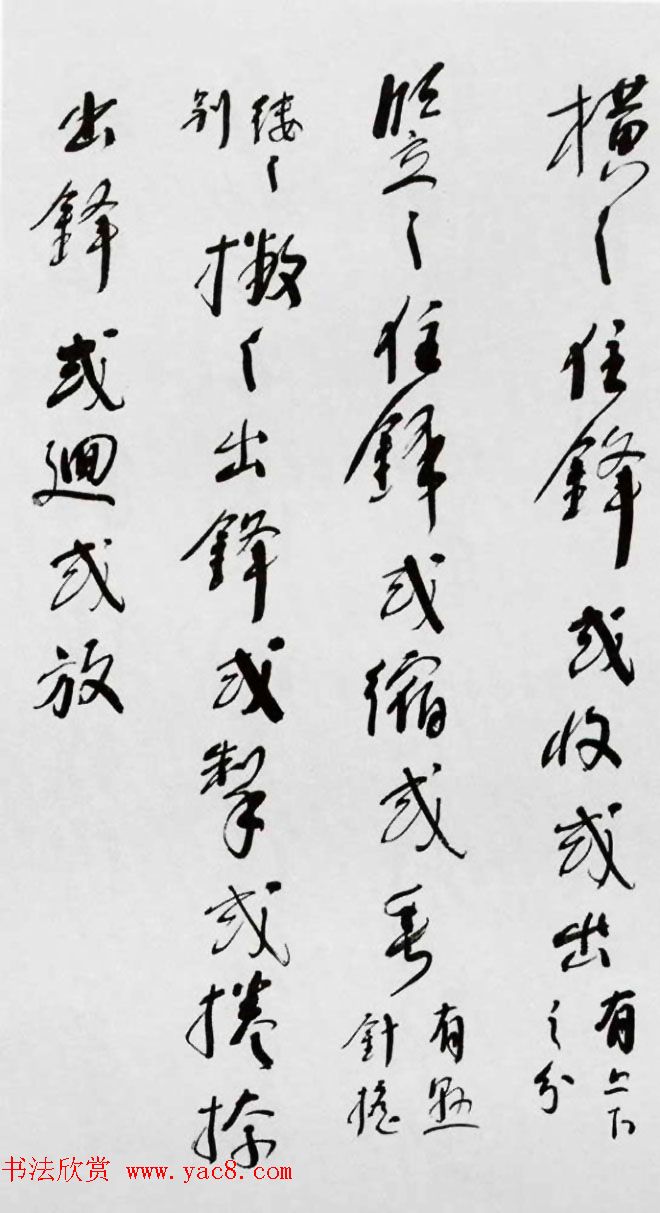 橫之住鋒或收或出有上下之分
竪之住鋒或縮或垂有懸針
縷之别撇之出鋒或掣或捲捺
出鋒或迴或放
书法欣赏 www.yac8.com